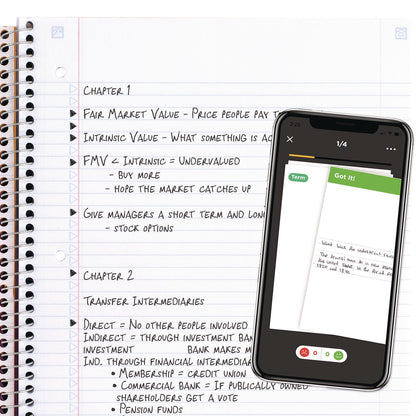 CHAPTER 1
FAIR MARKET VALUE - PRICE PEOPLE PAY
INTRINSIC VALUE - WHAT SOMETHING IS
FMV < INTRINSIC = UNDERVALUED
- BUY MORE
- HOPE THE MARKET CATCHES UP
GIVE MANAGERS A SHORT TERM AND
- STOCK OPTIONS
CHAPTER 2
TRANSFER INTERMEDIARIES
DIRECT = NO OTHER PEOPLE INVOLVED
INDIRECT = THROUGH INVESTMENT
INVESTMENT BANK MAKES
IND. THROUGH FINANCIAL
• MEMBERSHIP = CREDIT UNION
• COMMERCIAL BANK = IF PUBLICLY OWNED
SHAREHOLDERS GET A VOTE
• PENSION FUNDS
1/4
Term
Got It!
0 0